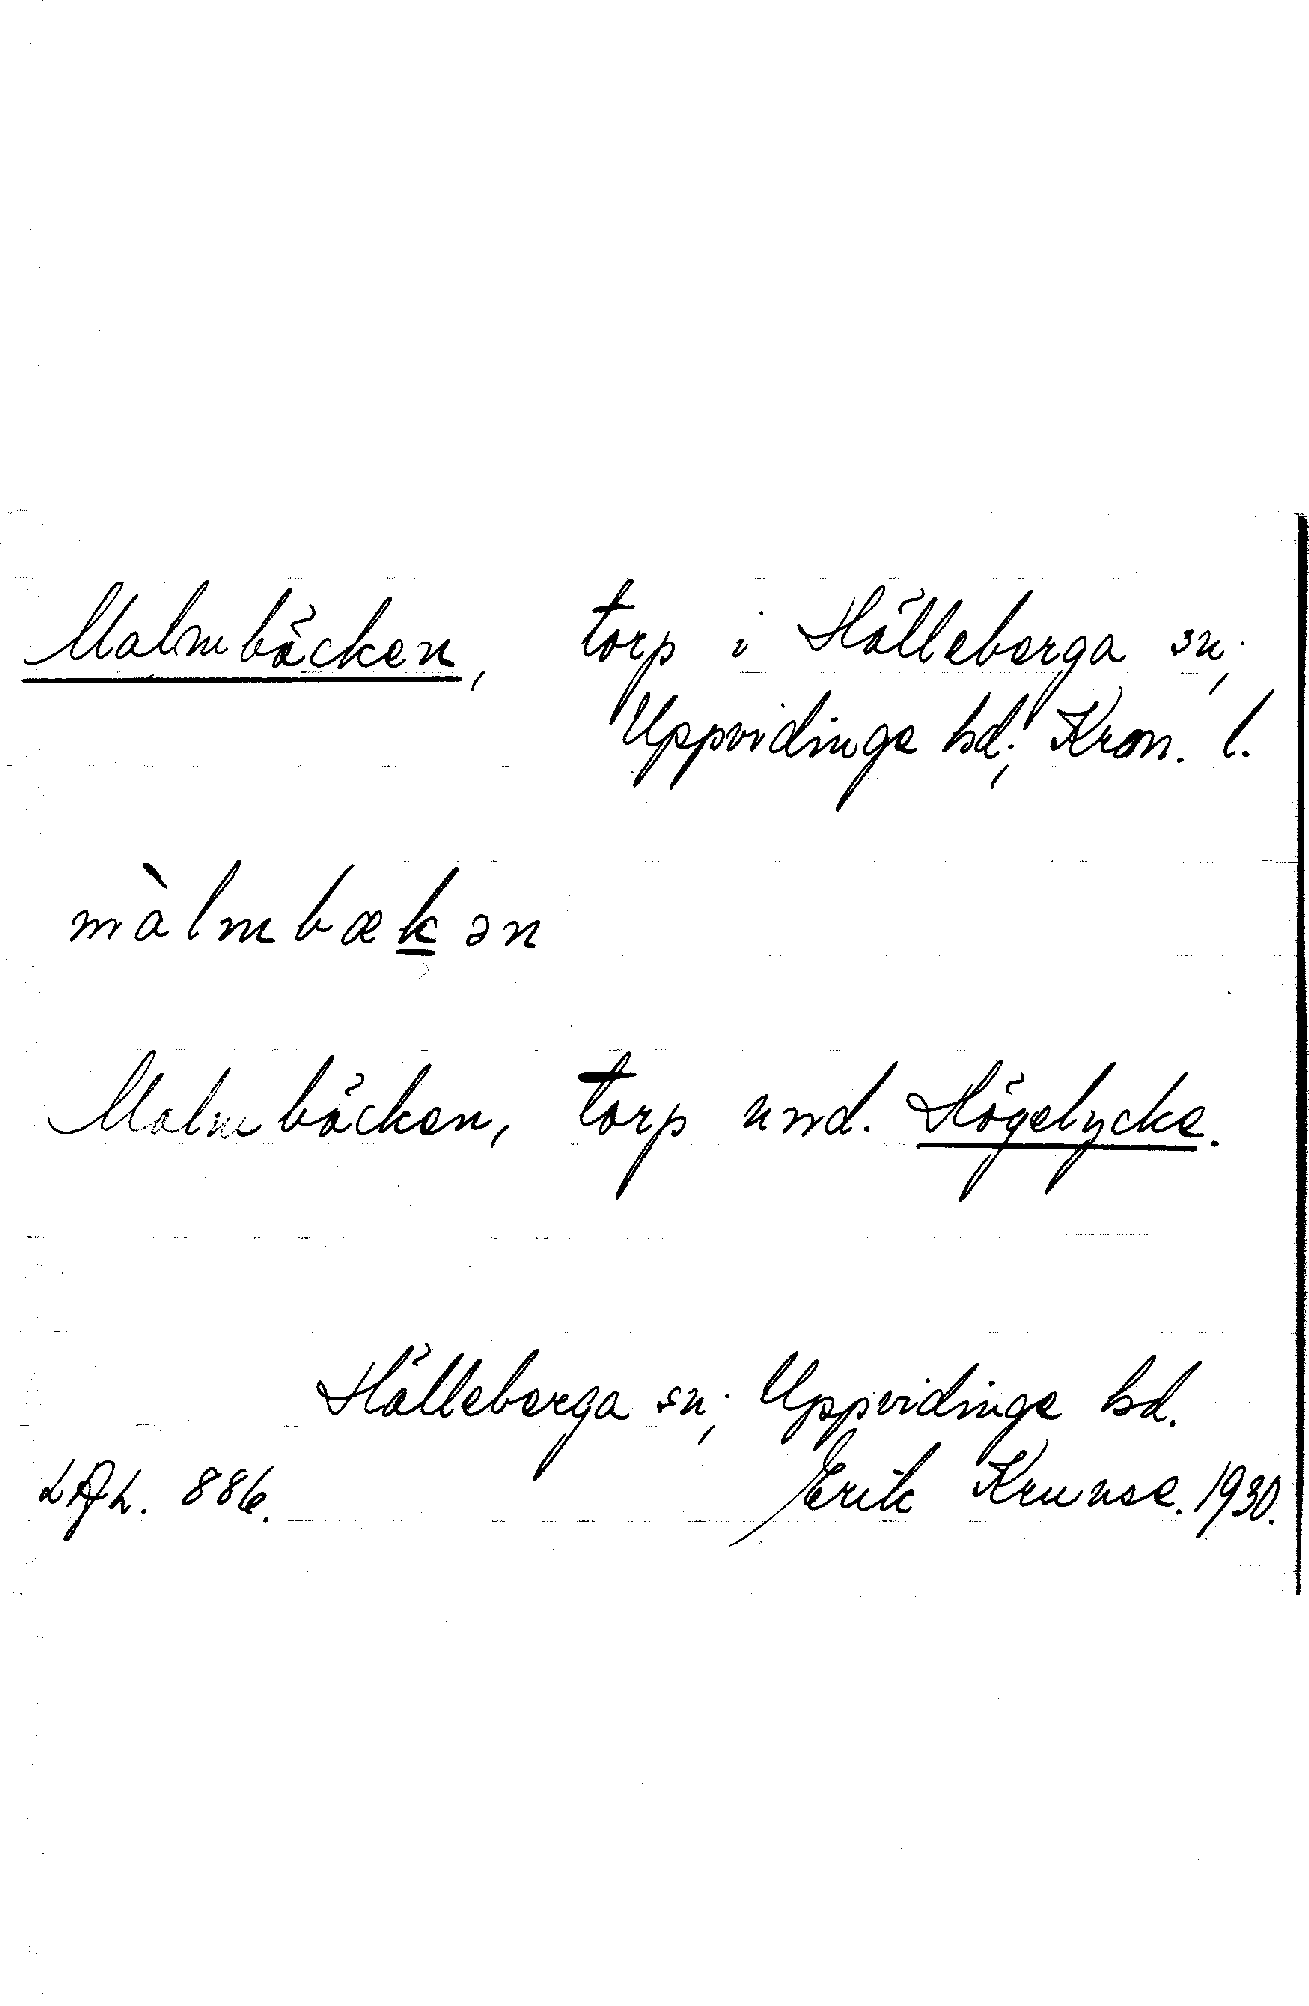 Malmbäcken, torp i Hälleberga sn;
Uppvidinge hd; Kron. l.
màlmbækən
Malmbäcken, torp und. Högelycke.
Hälleberga sn; Uppvidinge hd.
886. Erik Kruuse. 1930.